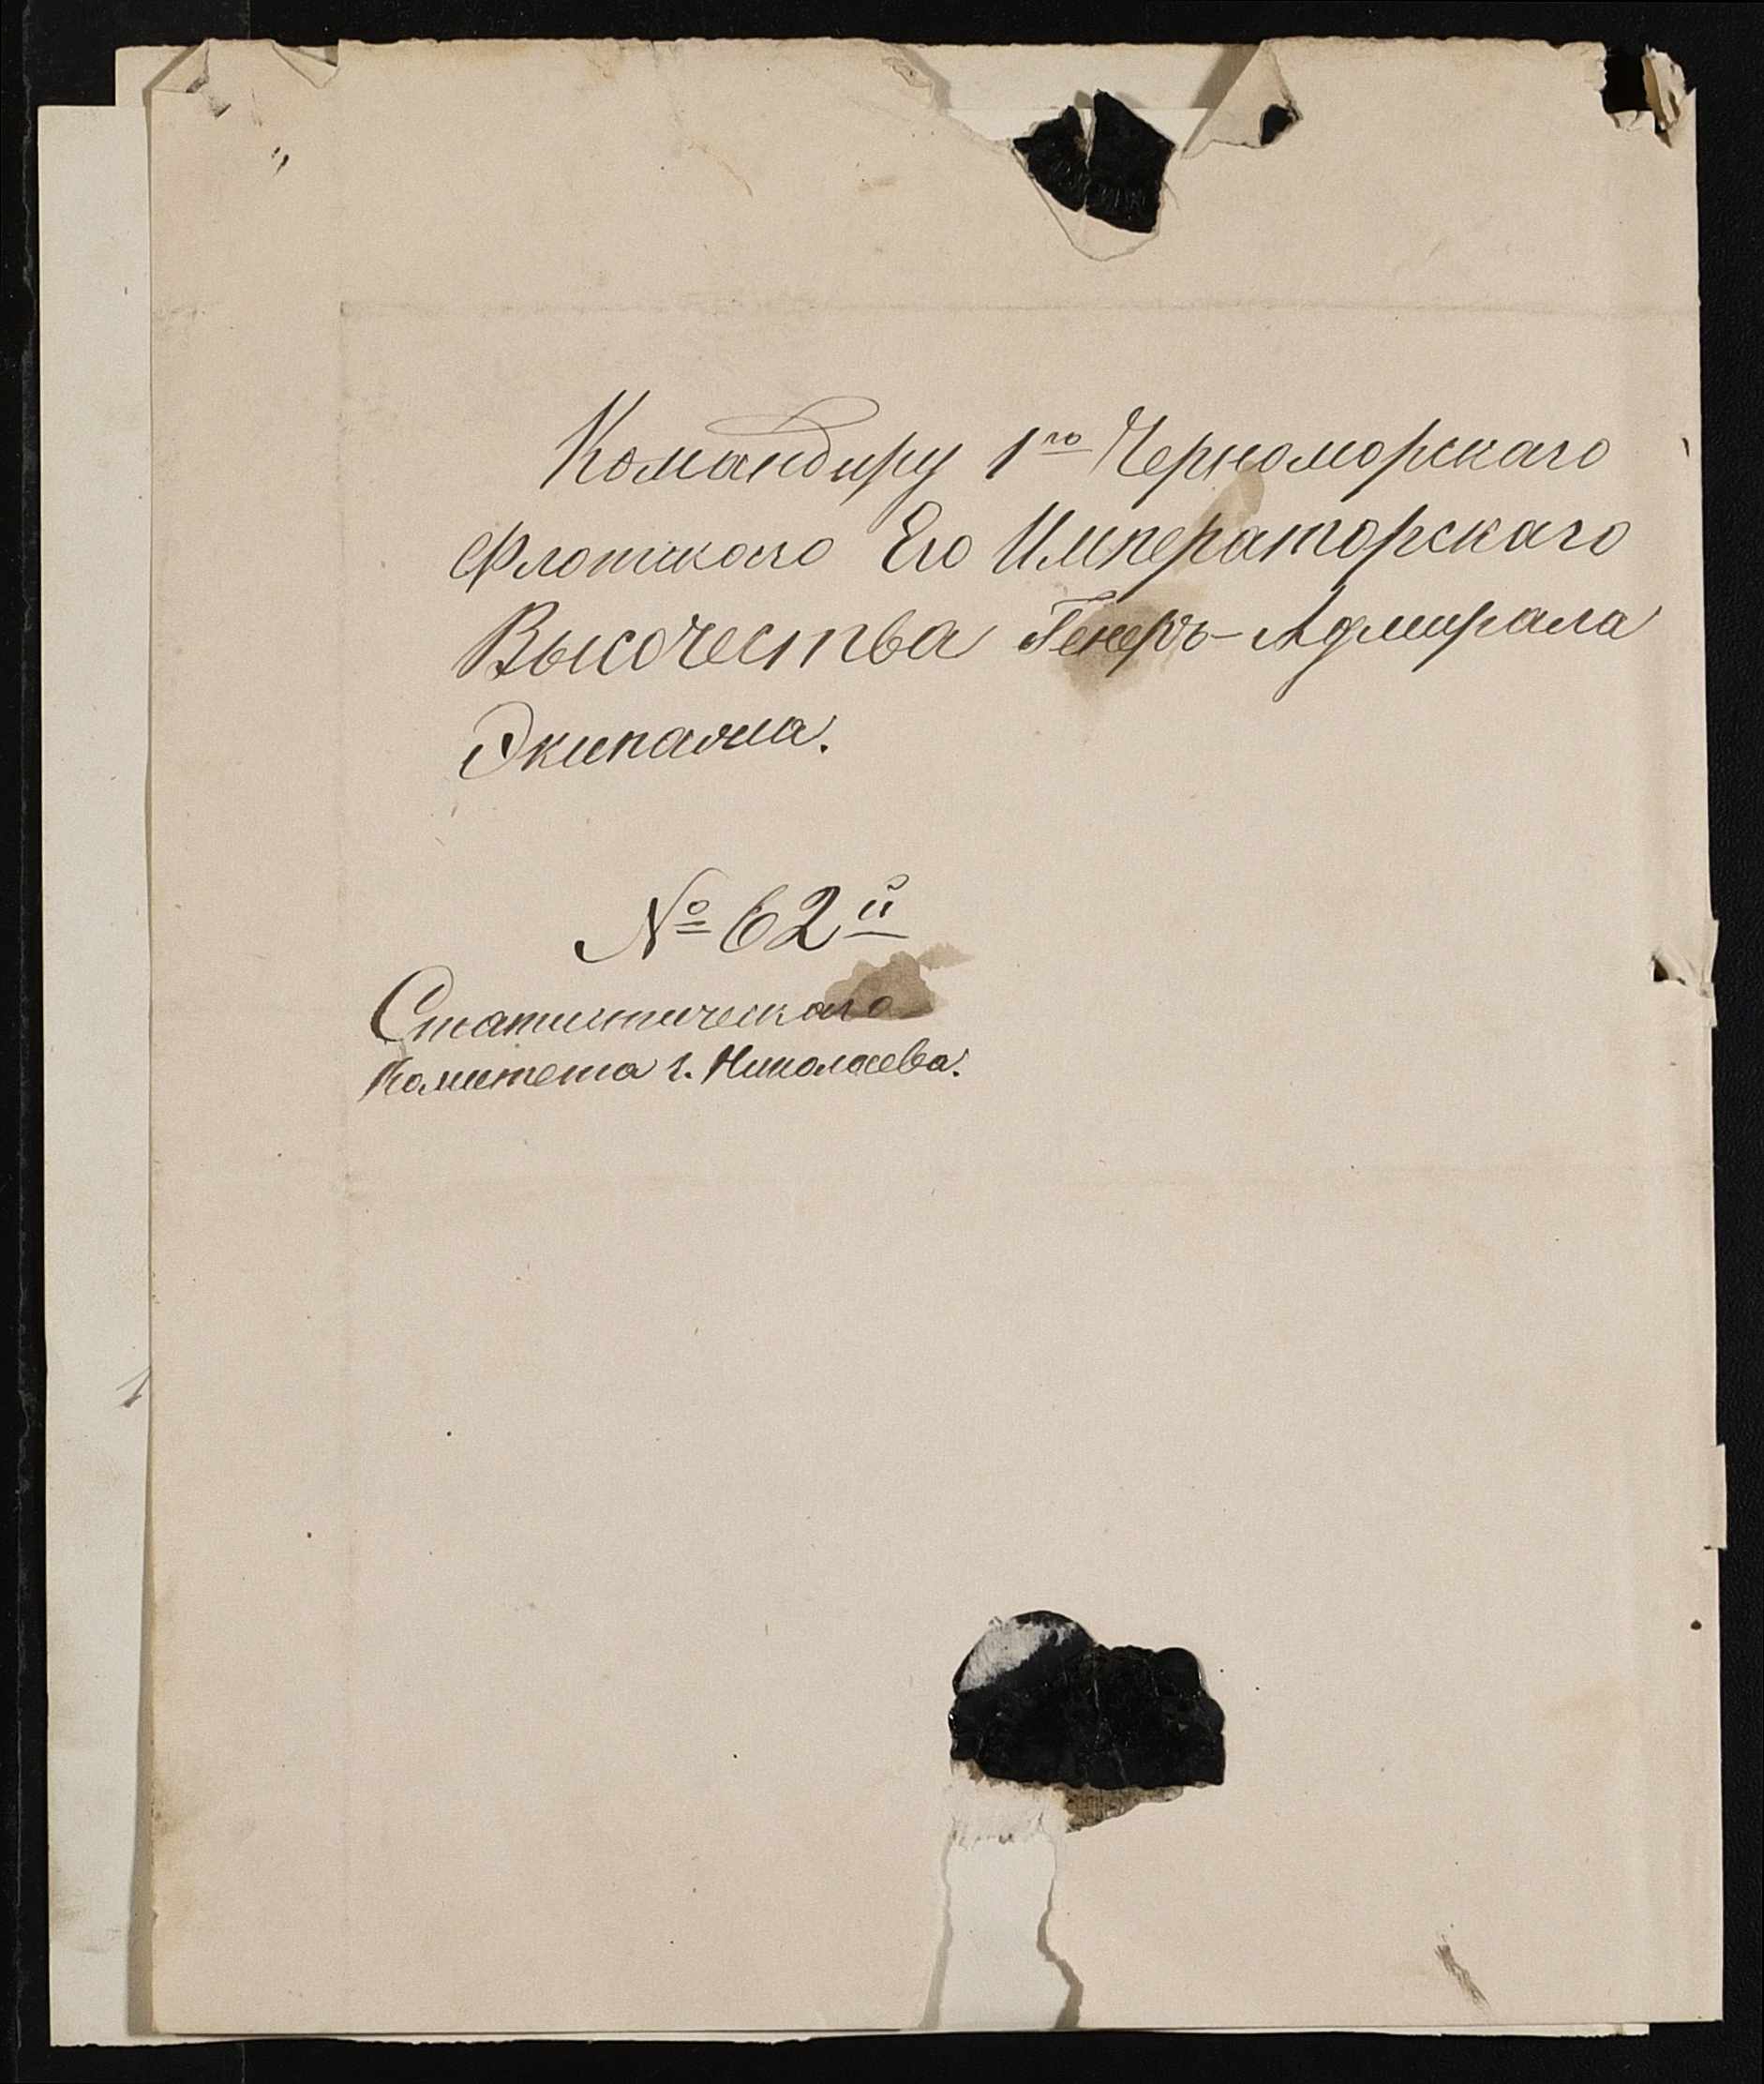 Командиру 1го Черноморскаго
Флотскаго Его Императорскаго
Высочества Генеръ-Адмирала
Экипажа.
№ 62й
Статистическаго
Комитета г. Николаева.